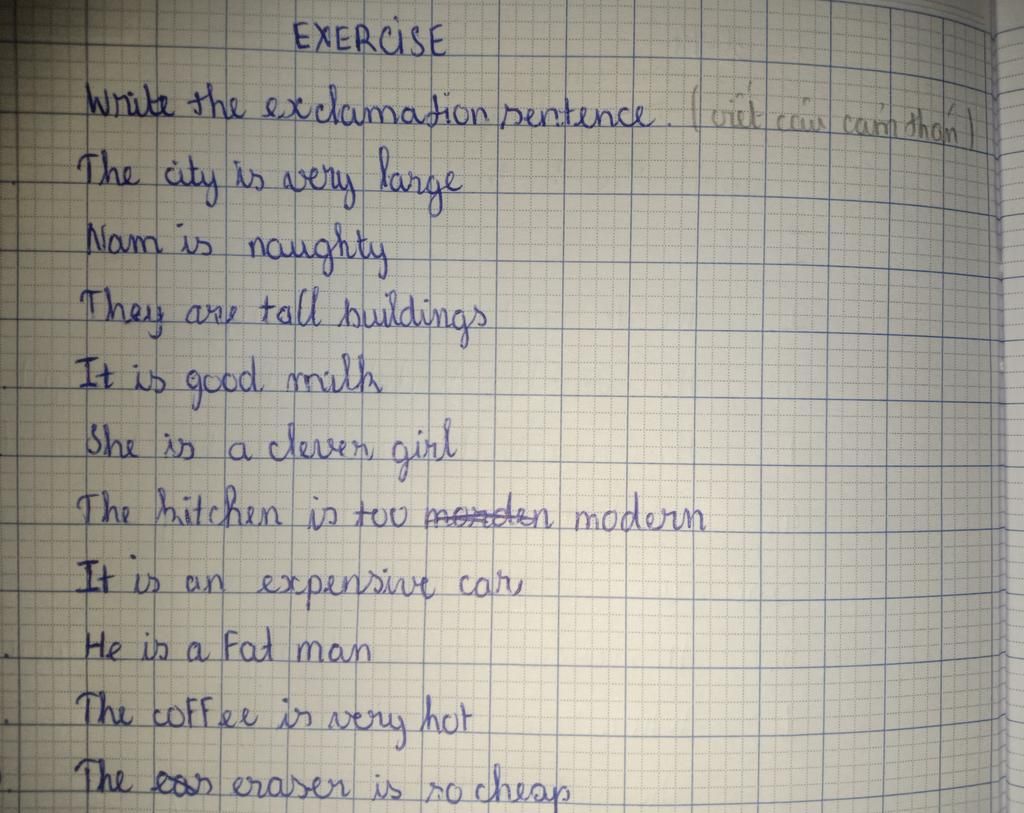 EXERCISE
Write the exclamation sentence. (viết câu cảm thán)
The city is very large
Nam is naughty
They are tall buildings
It is good milk
She is a clever girl
The kitchen is too monden modern
It is an expensive car
He is a Fat man
The coffee is very hot
The eas eraser is so cheap